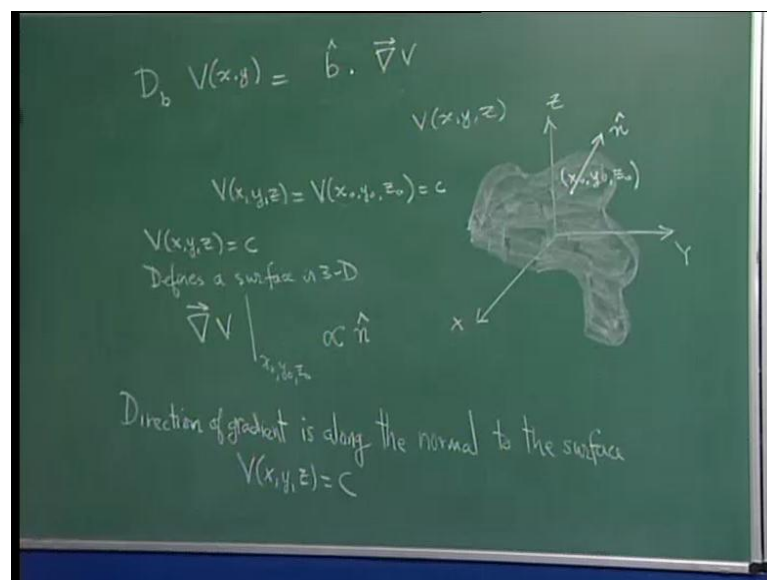 D_b V(x,y) = b̂ . ∇⃗ V
V(x,y,z)
Z
n̂
(x₀,y₀,z₀)
Y
X
V(x,y,z) = V(x₀,y₀,z₀) = c
V(x,y,z) = c
Defines a surface in 3-D
∇⃗ V |x₀,y₀,z₀ ∝ n̂
Direction of gradient is along the normal to the surface
V(x,y,z) = C